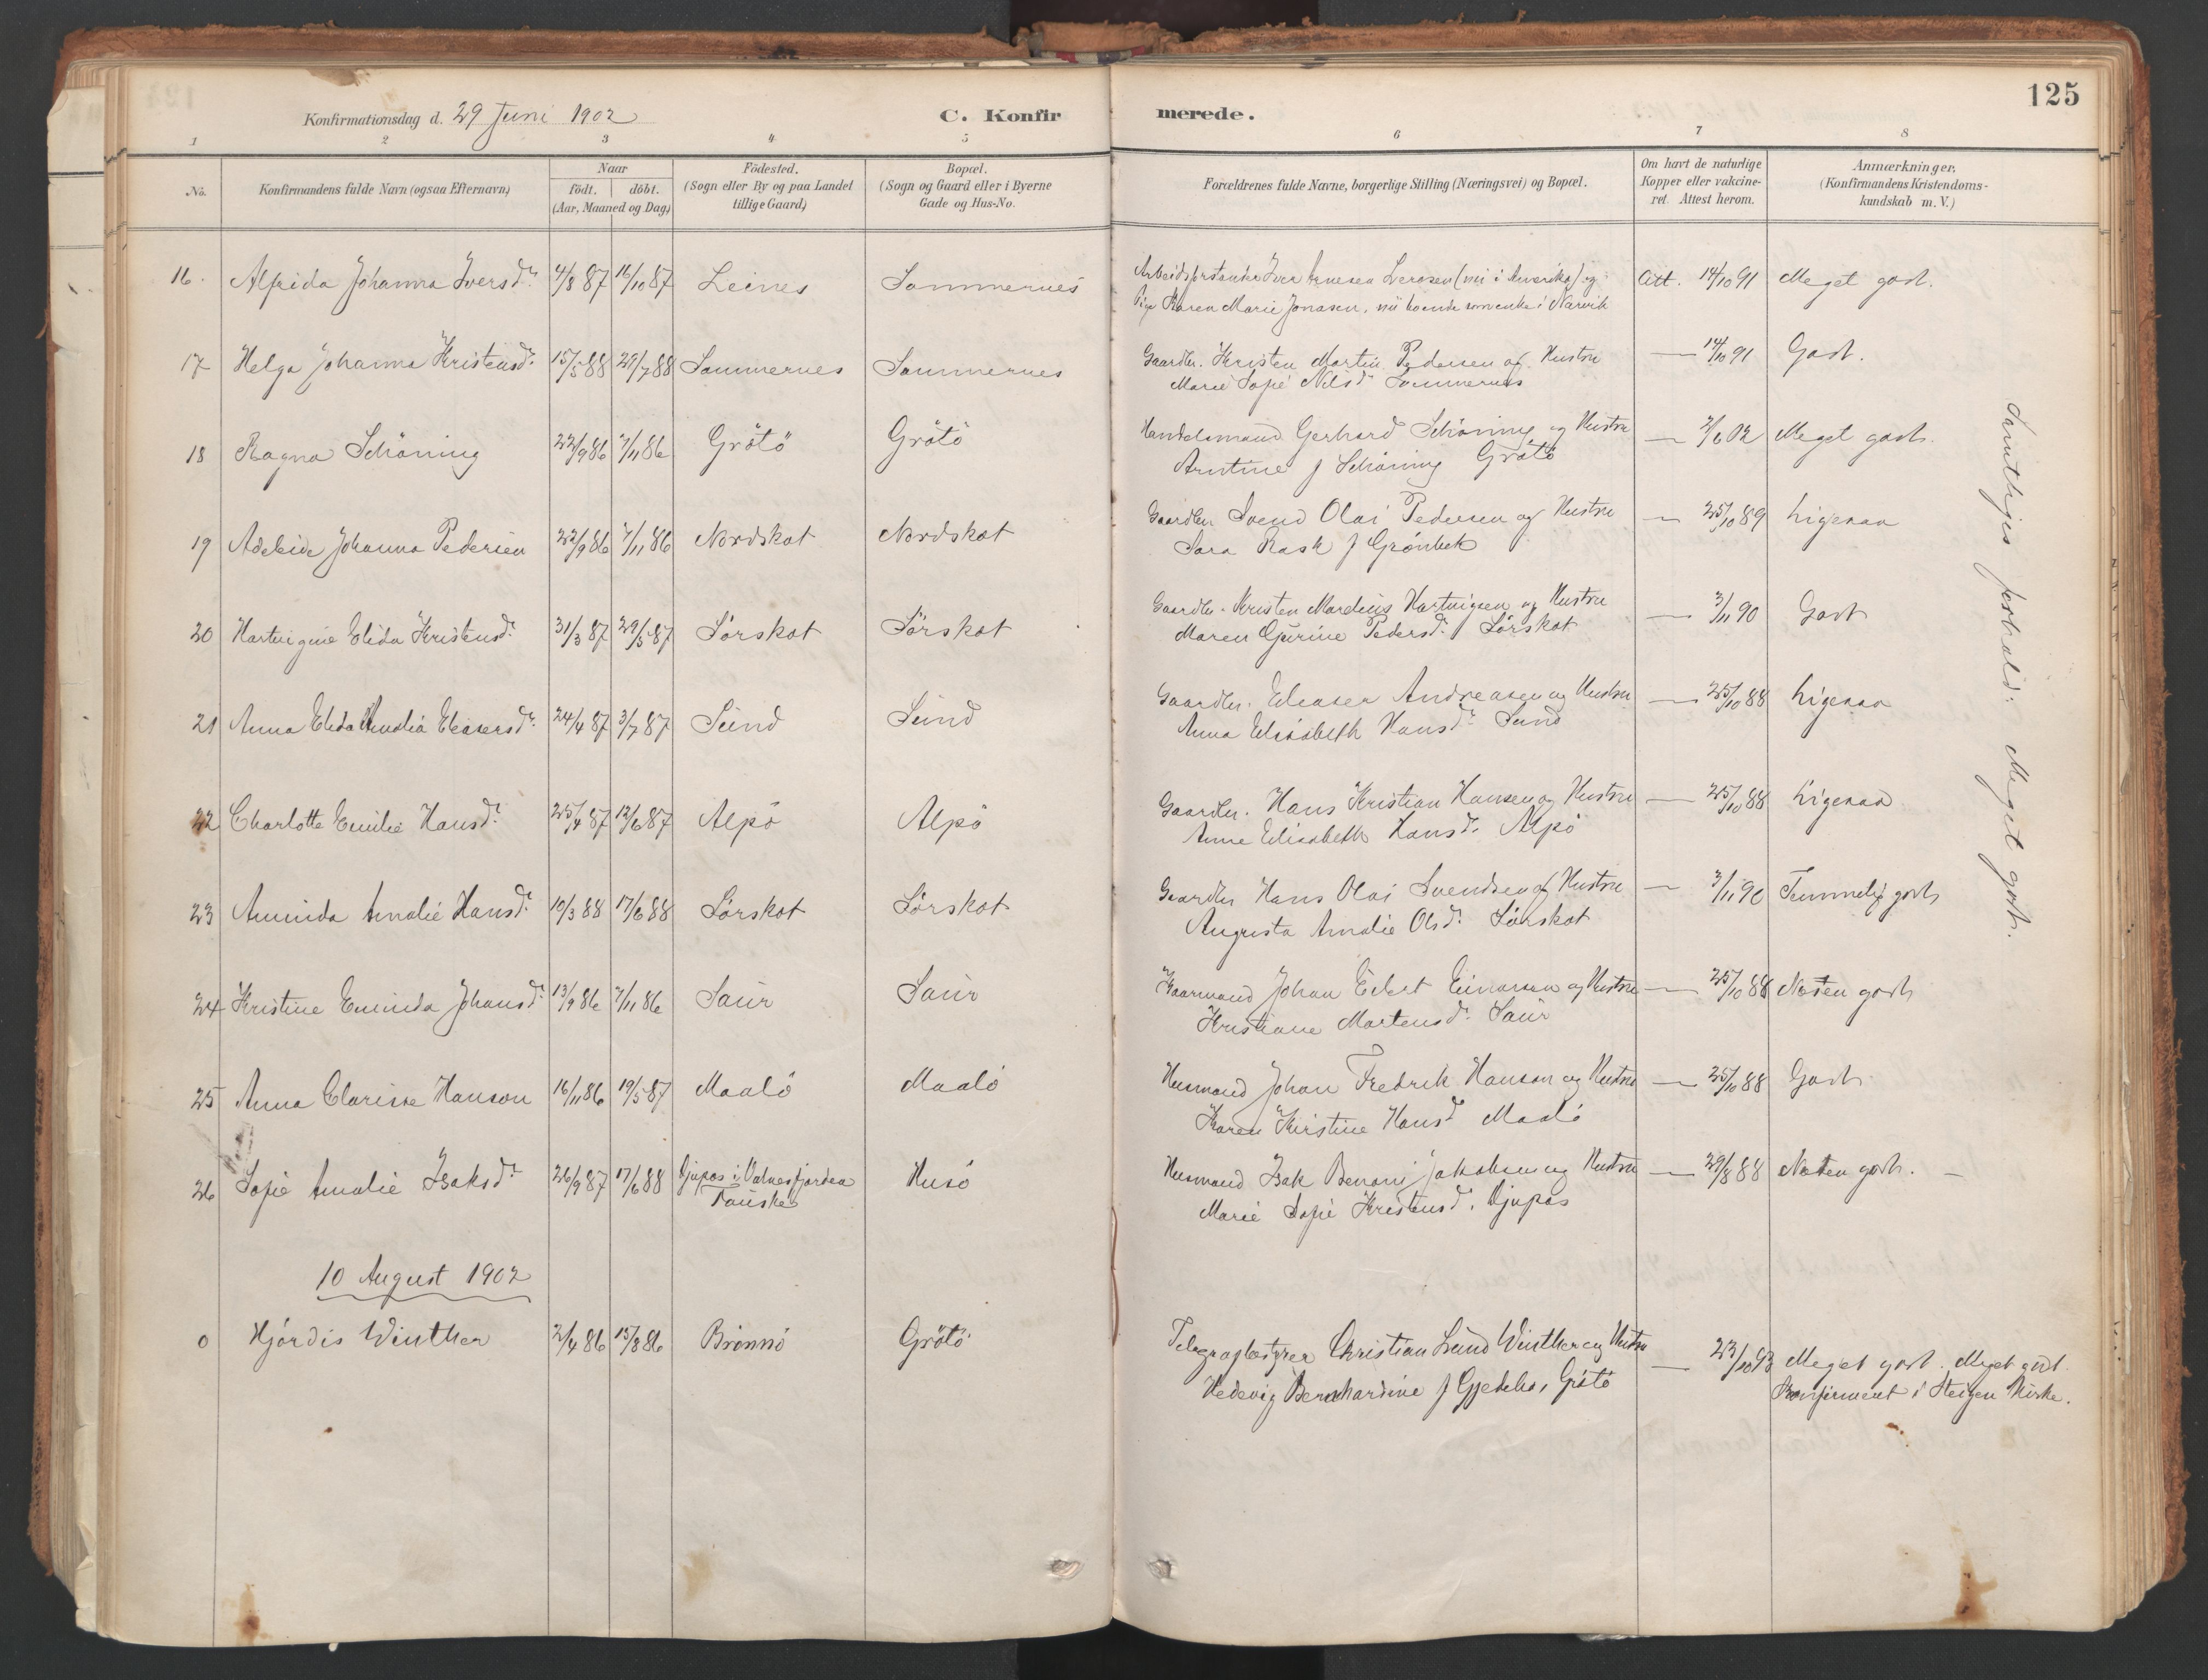 125
Konfirmationsdag d. 29 Juni 1902
C. Konfirmerede.
1 2 3 4 5 6 7 8
No.
Konfirmandens fulde Navn (ogsaa Efternavn)
Naar
födt. döbt.
(Aar, Maaned og Dag)
Födested.
(Sogn eller By og paa Landet
tillige Gaard)
Bopæl.
(Sogn og Gaard eller i Byerne
Gade og Hus-No.
Forældrenes fulde Navne, borgerlige Stilling (Næringsvei) og Bopæl.
Om havt de naturlige
Kopper eller vakcine-
ret. Attest herom.
Anmærkninger.
(Konfirmandens Kristendoms-
kundskab m. V.)
16. Alfrida Johanna Iversdr. 4/8 87 16/10 87 Leines Sommernes
Iver Arnesen Iversen (nu i Amerika) og
Pige Karen Marie Jonasen, nu boende som enke i Narvik
Att. 14/10 91 Meget godt.
17 Helga Johanna Kristensdr. 15/5 88 29/7 88 Sommernes Sommernes
Gaardbr. Kristen Martin Pedersen og Hustru
Marie Sofie Nilsdr Sommernes
— 14/10 91 Godt.
18 Ragna Schöning 22/9 86 7/11 86 Grötö Grötö
Handelsmand Gerhard Schöning og Hustru
Arntine f Schöning Grötö
— 2/6 02 Meget godt.
19 Adeleide Johanna Pedersen 22/9 86 7/11 86 Nordskot Nordskot
Gaardbr Svend Olai Pedersen og Hustru
Sara Rask f Grönbek
— 25/10 89 Ligesaa
20 Hartvigine Elida Kristensdr. 31/3 87 29/5 87 Sörskot Sörskot
Gaardbr. Kristen Mardius Hartvigsen og Hustru
Maren Gjurine Pedersdr. Sörskot
— 3/11 90 Godt
21 Anna Elida Amalia Eleasersdr. 24/4 87 3/7 87 Sund Sund
Gaardbr. Eleaser Andreasen og Hustru
Anna Elisabeth Hansdr Sund
— 25/10 88 Ligesaa
22 Charlotte Emilie Hansdr. 25/4 87 12/6 87 Alpö Alpö
Gaardbr. Hans Kristian Hansen og Hustru
Anne Elisabeth Hansdr. Alpö
— 25/10 88 Ligesaa
23 Aminda Amalie Hansdr. 10/3 88 17/6 88 Sörskot Sörskot
Gaardbr Hans Olai Svendsen og Hustru
Augusta Amalie Olsdr. Sörskot
— 3/11 90 Temmelig godt
24 Kristine Eminda Johansdr. 13/9 86 7/11 86 Saur Saur
Kaarmand Johan Edert Einarsen og Hustru
Kristiane Martensdr. Saur
— 25/10 88 Næsten godt
25 Anna Clarisse Hanson 16/11 86 19/5 87 Maalö Maalö
Husmand Johan Fredrik Hanson og Hustru
Karen Kirstine Hansdr Maalö
— 25/10 88 Godt
26 Sofie Amalie Isaksdr 26/9 87 17/6 88 Djupos i Valnesfjorden
Fauske
Husö
Husmand Isak Benoni Jakobsen og Hustru
Marie Sofie Kristensdr. Djupos
— 29/8 88 Næsten godt. —
Samtliges forhold: Meget godt.
10 August 1902
0 Hjördis Winther 2/4 86 15/8 86 Brönnö Grötö
Telegrafbestyrer Christian Lund Winther og Hustru
Hedevig Bernhardine f Gjedebo, Grötö
— 23/10 93 Meget godt. Meget godt.
Konfirmeret i Steigen Kirke.